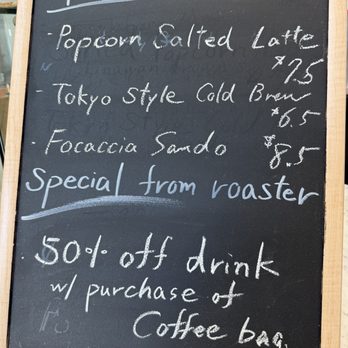 - Popcorn Salted Latte
$7.5
- Tokyo Style Cold Brew
$6.5
- Focaccia Sando $8.5
Special from roaster
50% off drink
w/ purchase of
Coffee bag.